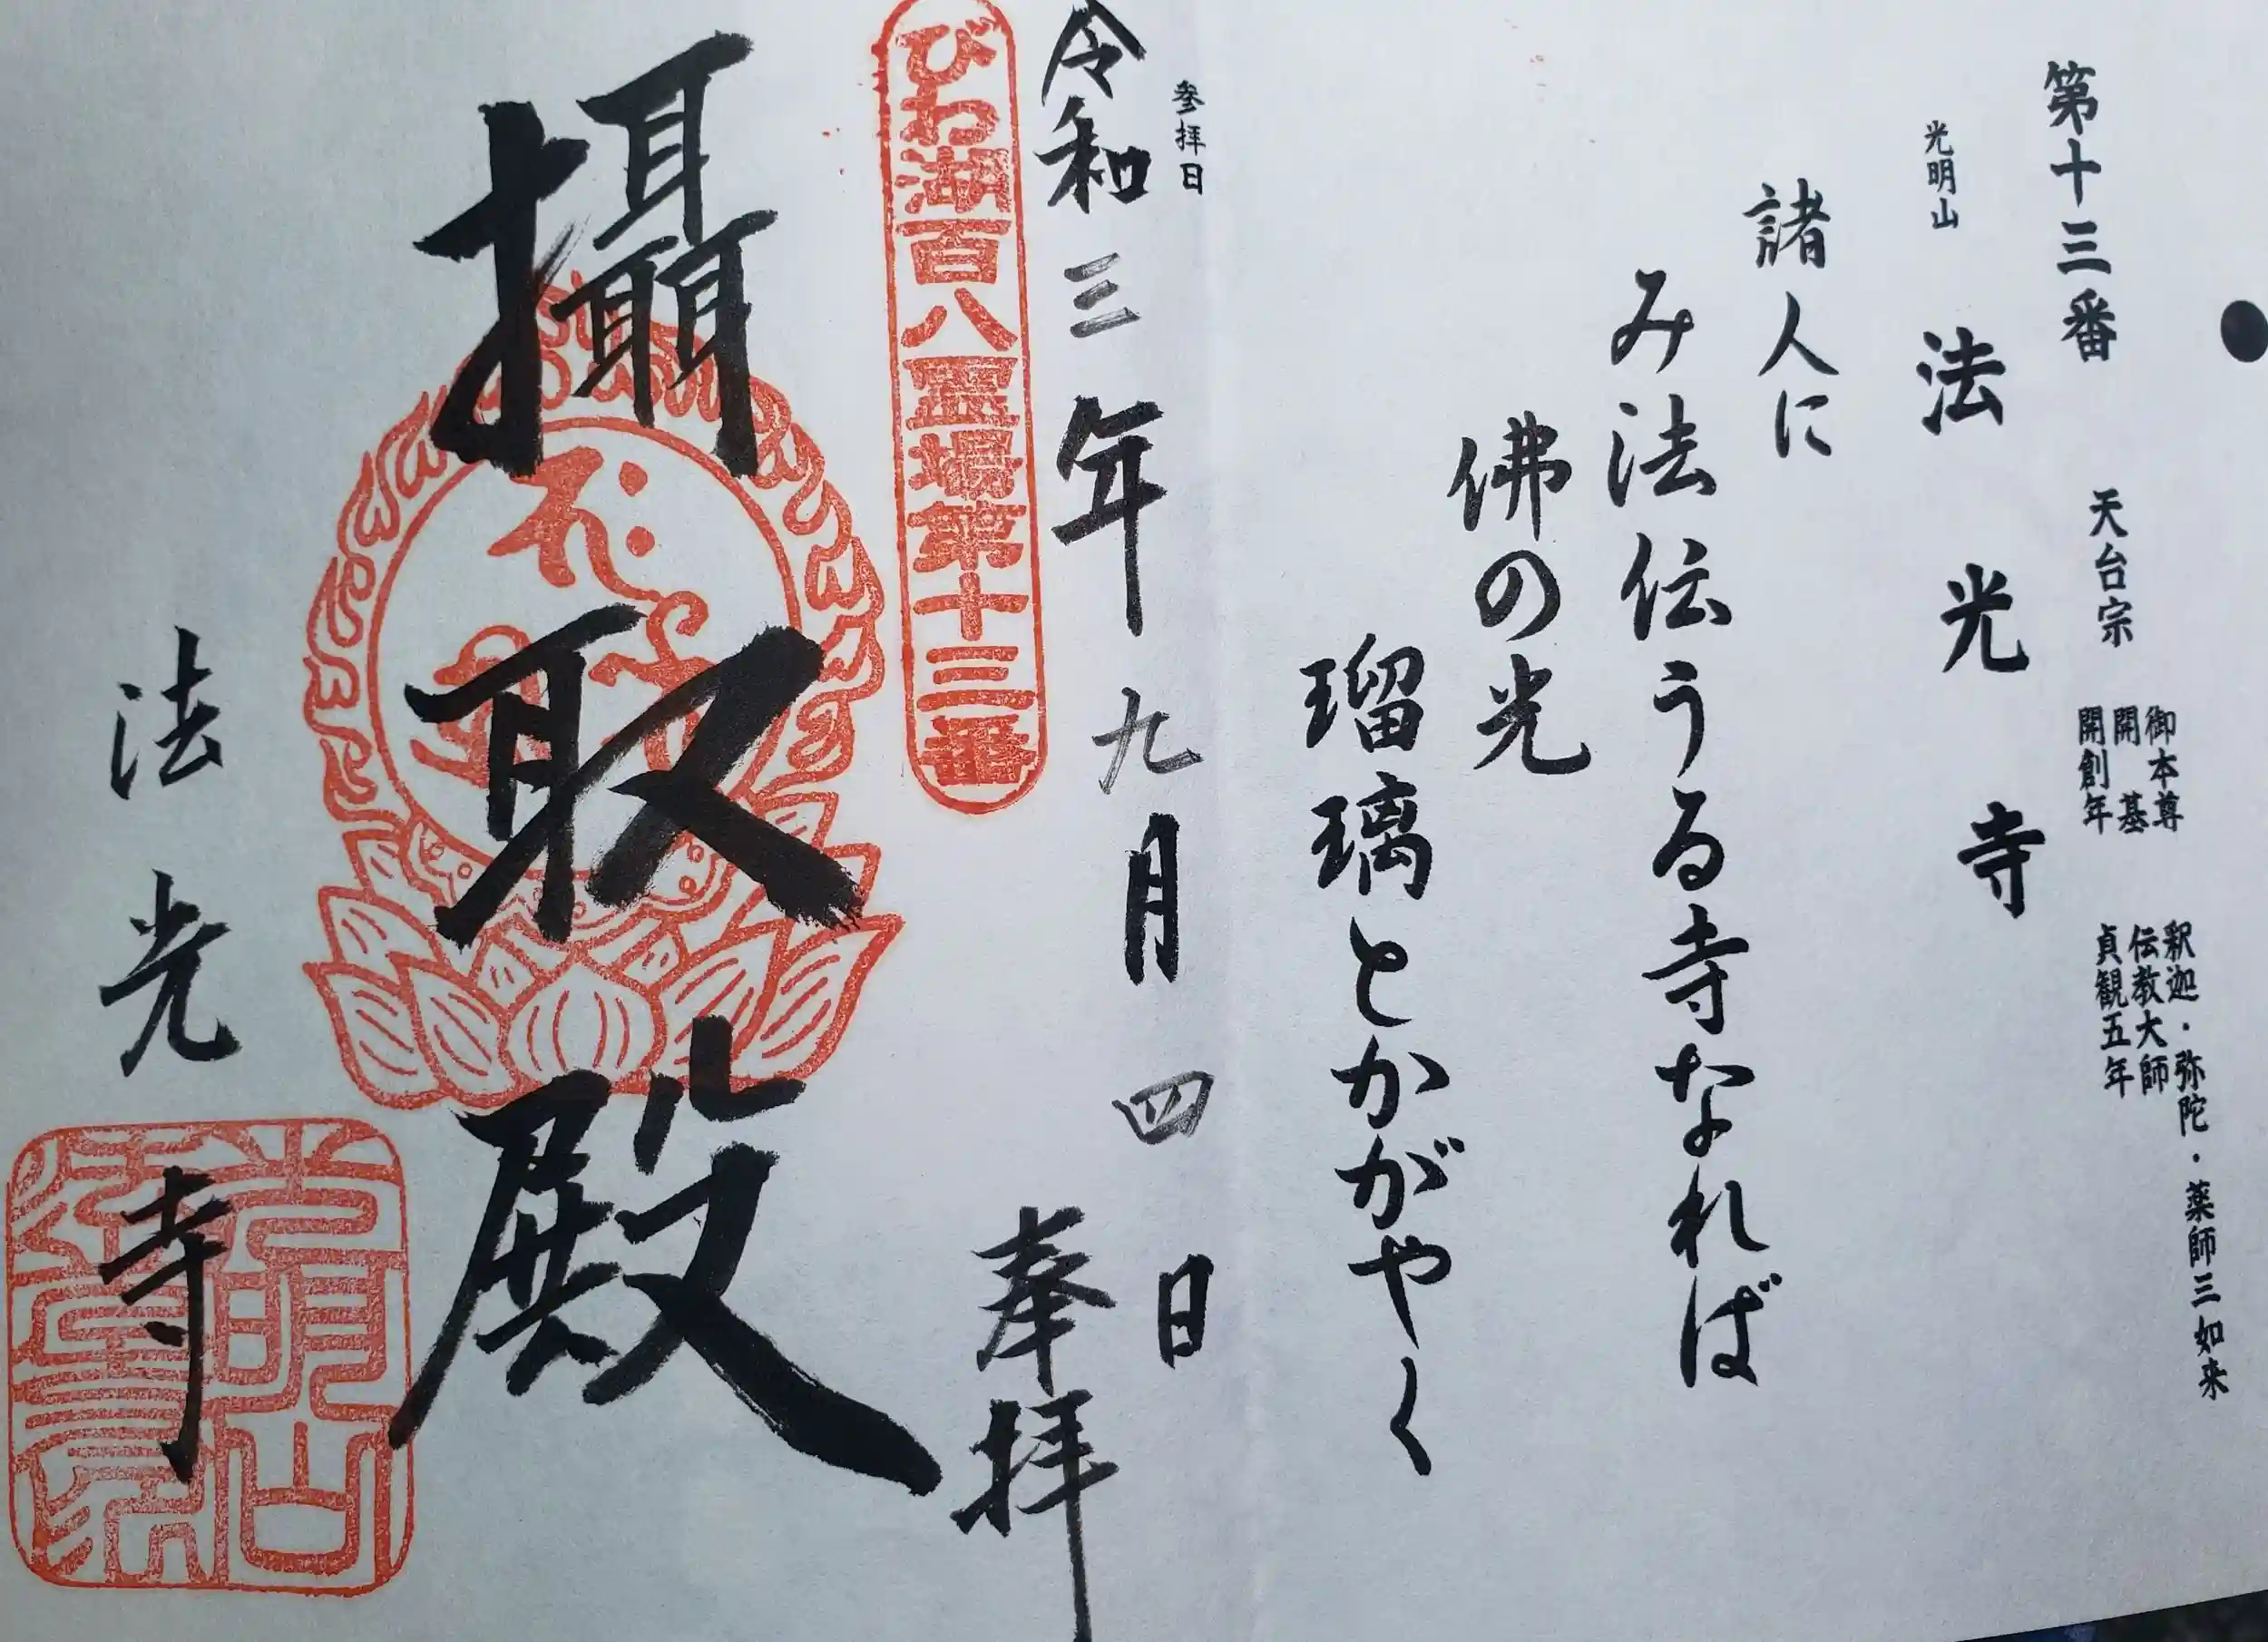 第十三番 天台宗
御本尊 釈迦・弥陀・薬師三如来
開基 伝教大師
開創年 貞観五年
光明山 法光寺
諸人に
み法伝うる寺なれば
佛の光
瑠璃とかがやく
参拝日
令和三年九月四日
奉拝
びわ湖百八霊場第十三番
攝取殿
法光寺
光明山